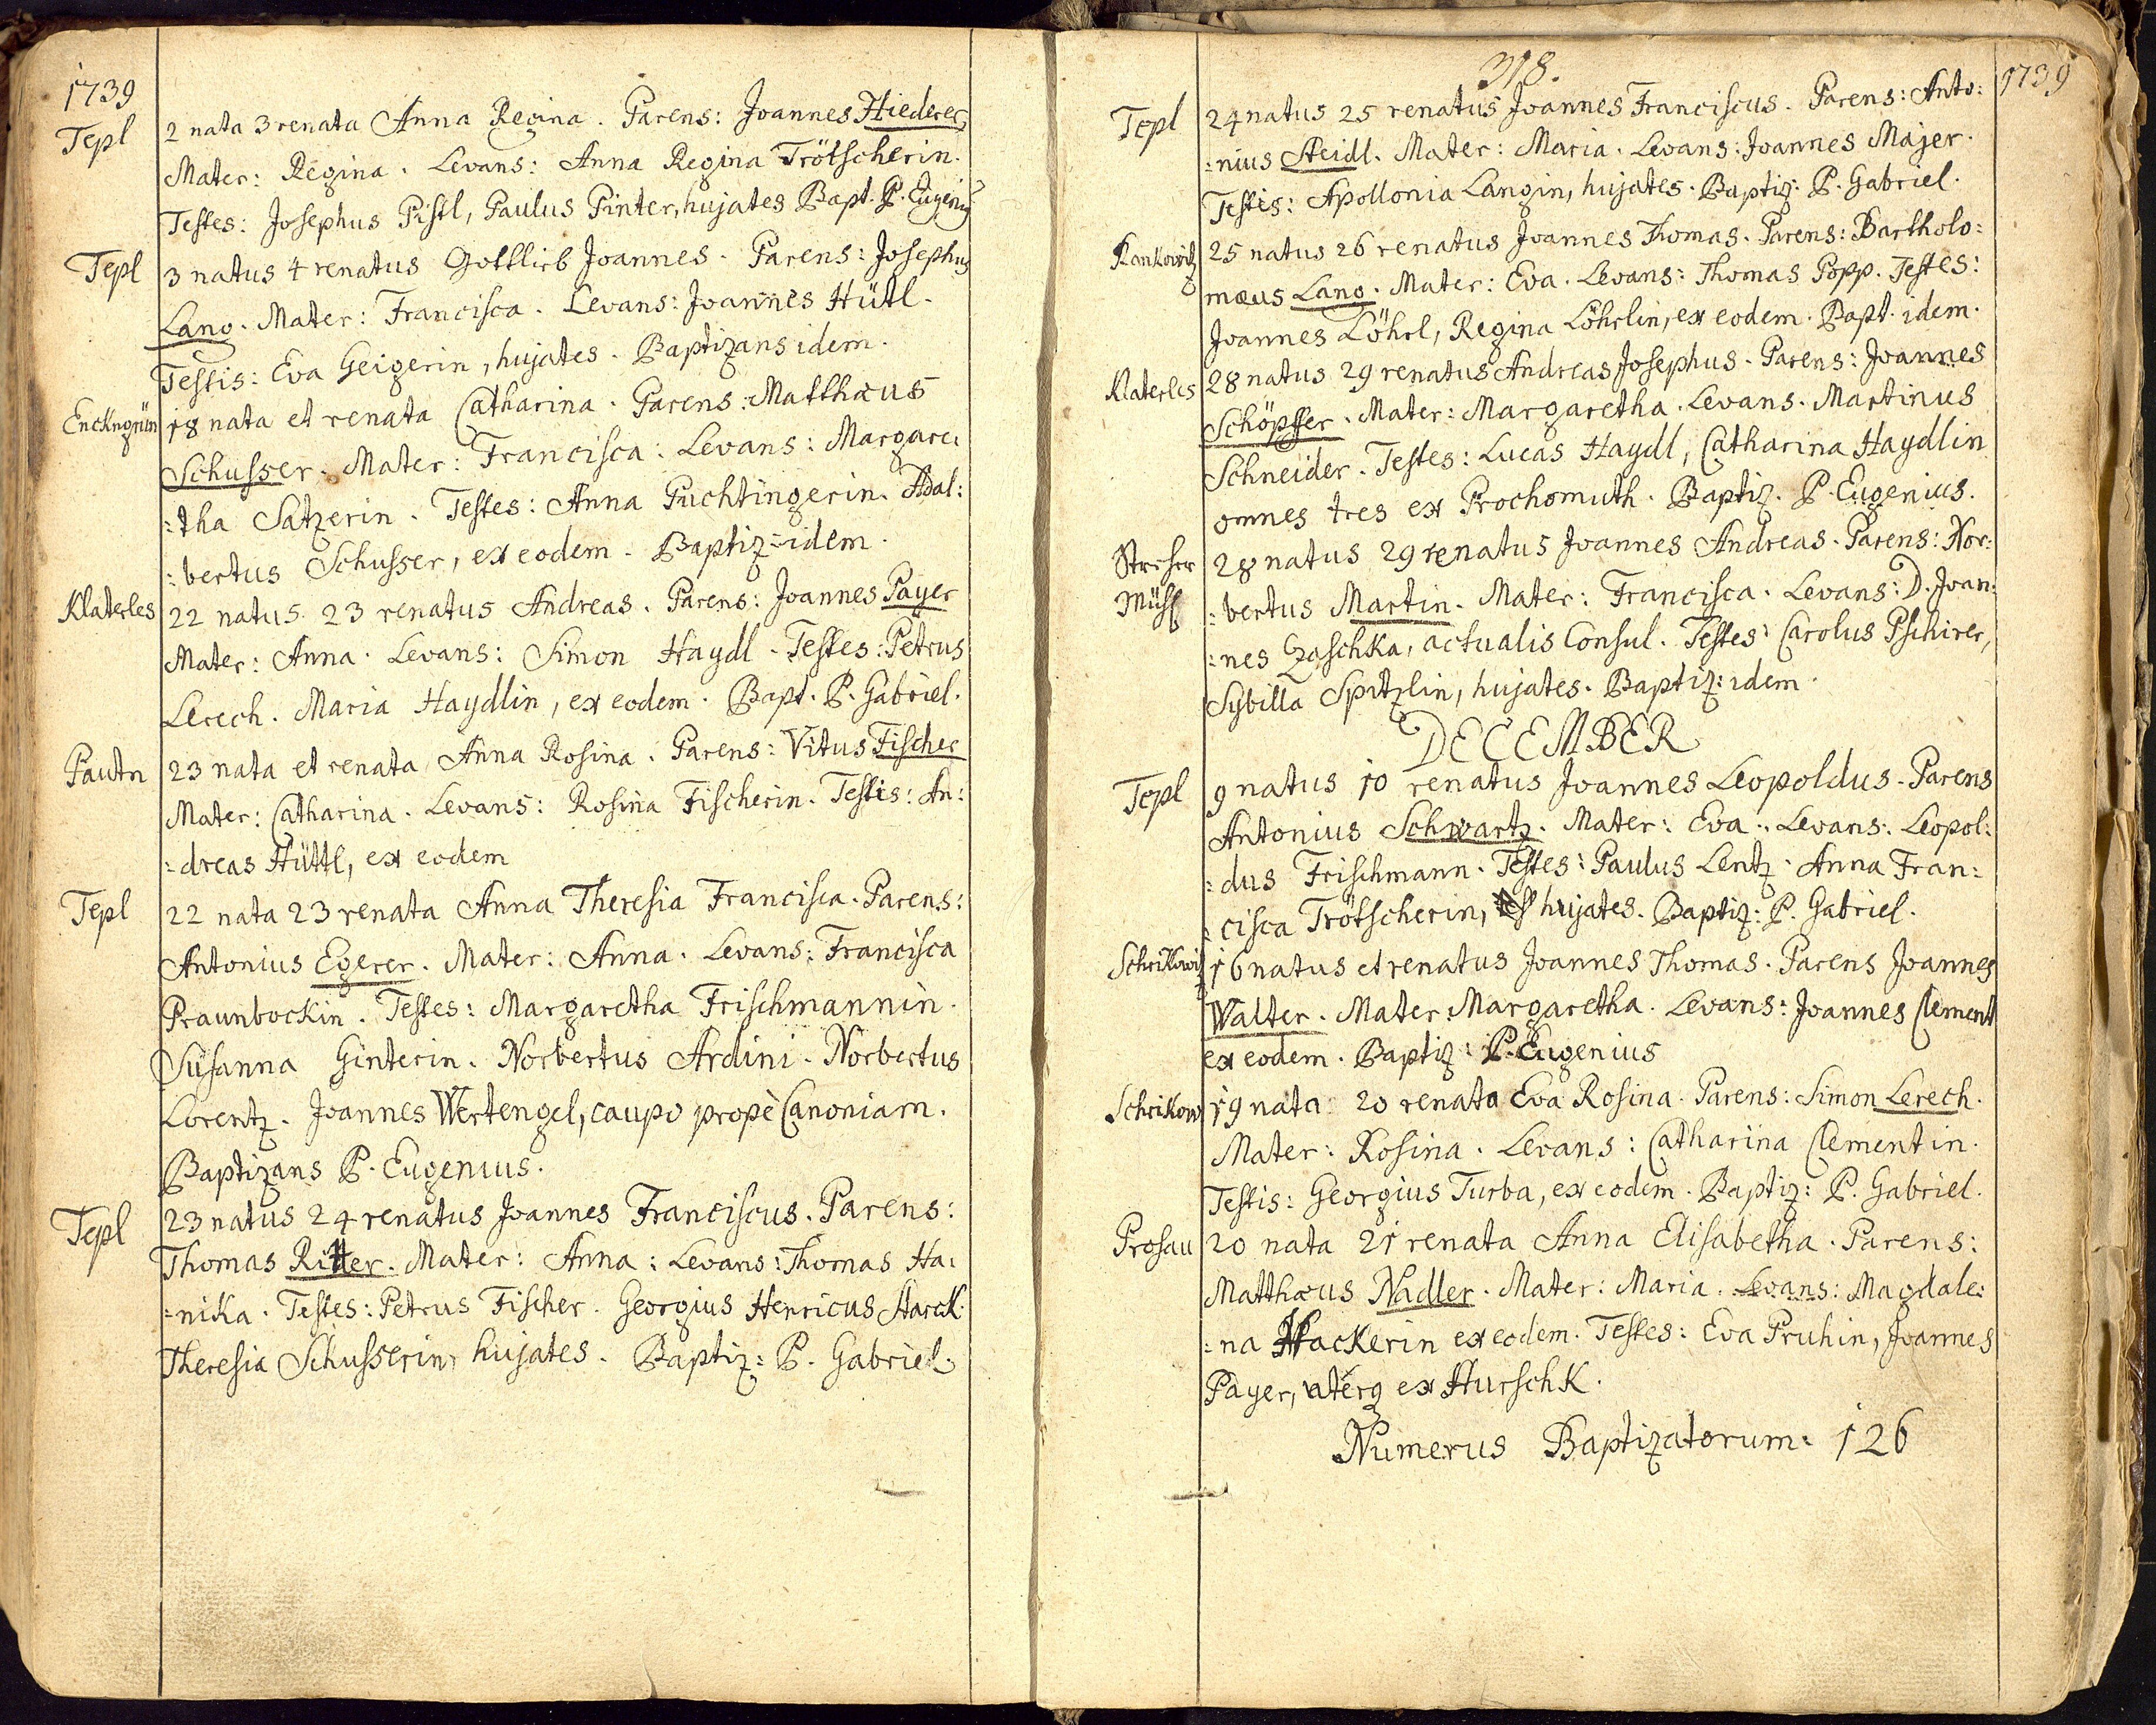 1739
Tepl
2 nata 3 renata Anna Regina. Parens: Joannes Hiederer,
Mater: Regina. Levans: Anna Regina Trötscherin.
Testes: Josephus Pistl, Paulus Pinter, hujates Bapt. P. Eugenig
Tepl
3 natus 4 renatus Gottlieb Joannes. Parens: Josephus
Lang. Mater: Francisca. Levans: Joannes Hütl.
Testis: Eva Geigerin, hujates. Baptizans idem.
Enckngrün
18 nata et renata Catharina. Parens: Matthæus
Schusser. Mater: Francisca: Levans: Margare:
:tha Satzerin. Testes: Anna Puchtingerin. Adal:
:bertus Schusser, ex eodem. Baptiz: idem.
Klaterles
22 natus 23 renatus Andreas. Parens: Joannes Payer
Mater: Anna. Levans: Simon Haydl. Testes: Petrus
Lerech. Maria Haydlin, ex eodem. Bapt. P. Gabriel.
Pautn
23 nata et renata Anna Rosina. Parens: Vitus Fischer
Mater: Catharina. Levans: Rosina Fischerin. Testis: An:
:dreas Hüttl, ex eodem
Tepl
22 nata 23 renata Anna Theresia Francisca. Parens:
Antonius Egerer. Mater: Anna. Levans: Francisca
Praunbockin. Testes: Margaretha Frischmannin.
Susanna Ginterin. Norbertus Ardini. Norbertus
Lorentz. Joannes Wertengel, caupo propè Canoniam.
Baptizans P. Eugenius.
Tepl
23 natus 24 renatus Joannes Franciscus. Parens:
Thomas Ritter. Mater: Anna: Levans: Thomas Ha:
:nika. Testes: Petrus Fischer. Georgius Henricus Starck.
Theresia Schusserin, hujates. Baptiz: P. Gabriel.
318.
1739
Tepl
24 natus 25 renatus Joannes Franciscus. Parens: Anto:
:nius Steidl. Mater: Maria. Levans: Joannes Majer.
Testis: Apollonia Langin, hujates. Baptiz: P. Gabriel.
Rankowitz
25 natus 26 renatus Joannes Thomas. Parens: Bartholo:
mæus Lang. Mater: Eva. Levans: Thomas Popp. Testes:
Joannes Löhrl, Regina Löhrlin, ex eodem. Bapt. idem.
Klaterles
28 natus 29 renatus Andreas Josephus. Parens: Joannes
Schöpffer. Mater: Margaretha. Levans. Martinus
Schneider. Testes: Lucas Haydl, Catharina Haydlin
omnes tres ex Prochomuth. Baptiz. P. Eugenius.
Mühl
28 natus 29 renatus Joannes Andreas. Parens: Nor:
:bertus Martin. Mater: Francisca. Levans: D. Joan:
:nes Zaschka, actualis Consul. Testes: Carolus Pschirer,
Sybilla Spitzlin, hujates. Baptiz: idem.
DECEMBER
Tepl
9 natus 10 renatus Joannes Leopoldus. Parens
Antonius Schwartz. Mater: Eva. Levans: Leopol:
:dus Frischmann. Testes: Paulus Lentz. Anna Fran:
:cisca Trötscherin, hujates. Baptiz: P. Gabriel.
Schrikowitz
16 natus et renatus Joannes Thomas. Parens Joannes
Walter. Mater: Margaretha. Levans: Joannes Clement
ex eodem. Baptiz: P. Eugenius
Schrikow
19 nata 20 renata Eva Rosina. Parens: Simon Lerech.
Mater: Rosina. Levans: Catharina Clementin.
Testis: Georgius Turba, ex eodem. Baptiz: P. Gabriel.
Prosau
20 nata 21 renata Anna Elisabetha. Parens:
Matthæus Nadler. Mater: Maria. Levans: Magdale:
:na Hackerin ex eodem. Testes: Eva Pruhin, Joannes
Payer, uterq ex Hurschk.
Numerus Baptizatorum: 126